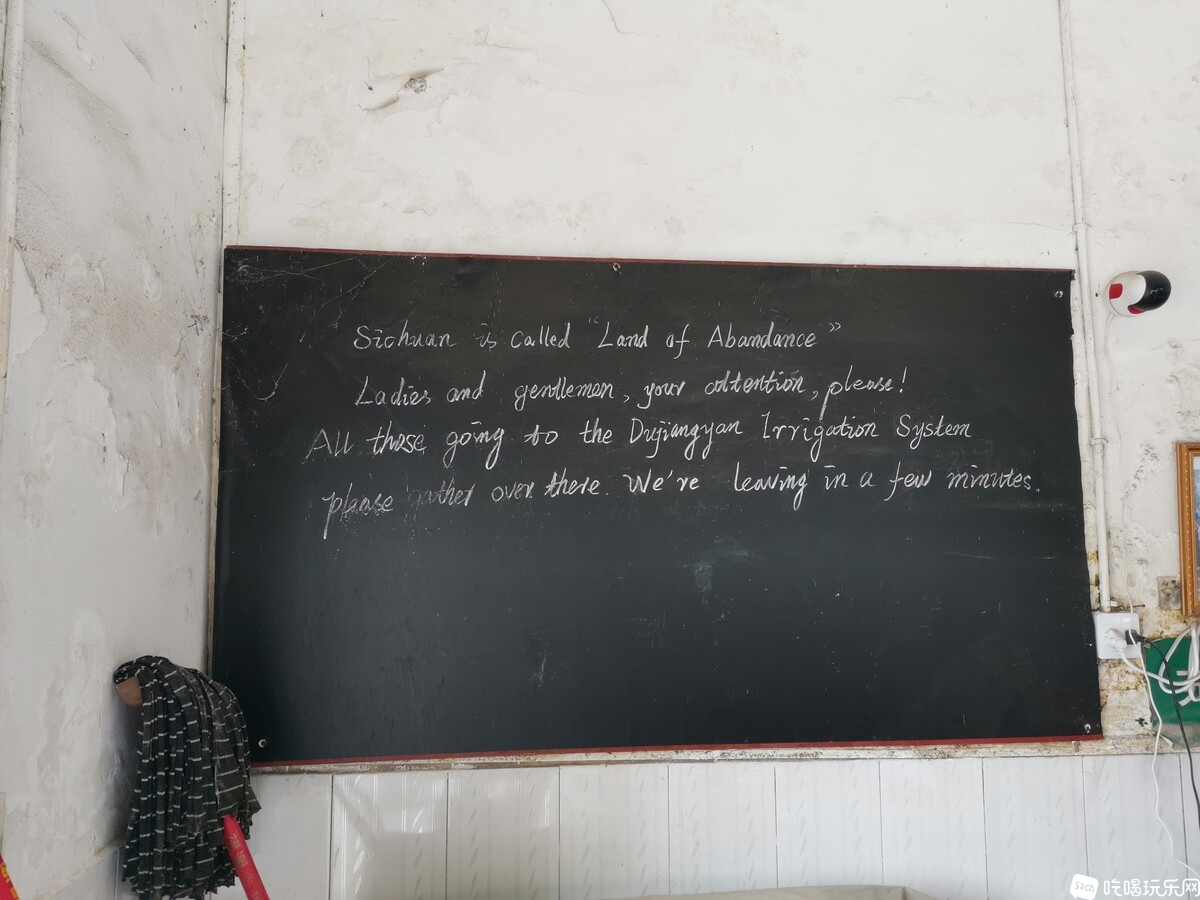 Sichuan is called “Land of Abandance”
Ladies and gentlemen, your attention, please!
All those going to the Dujiangyan Irrigation System
please gather over there. We're leaving in a few minutes.
吃喝玩乐网